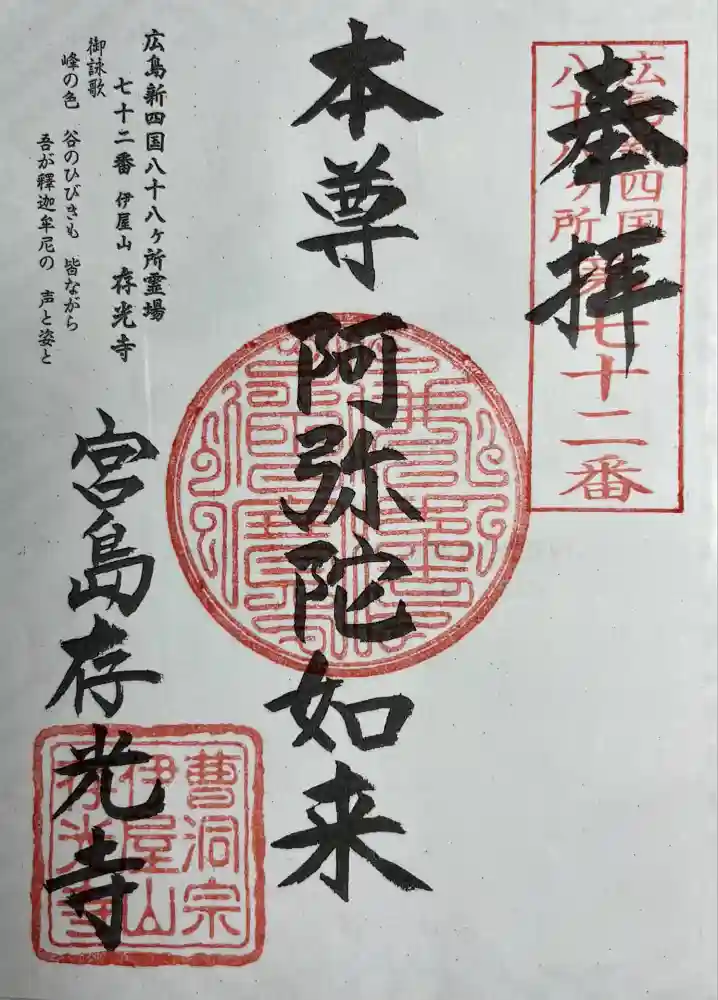 奉拝
広島新四国
八十八ヶ所第七十二番
本尊 阿弥陀如来
広島新四国八十八ヶ所霊場
七十二番 伊屋山 存光寺
御詠歌
峰の色 谷のひびきも 皆ながら
吾が釋迦牟尼の 声と姿と
宮島存光寺
曹洞宗
伊屋山
存光寺